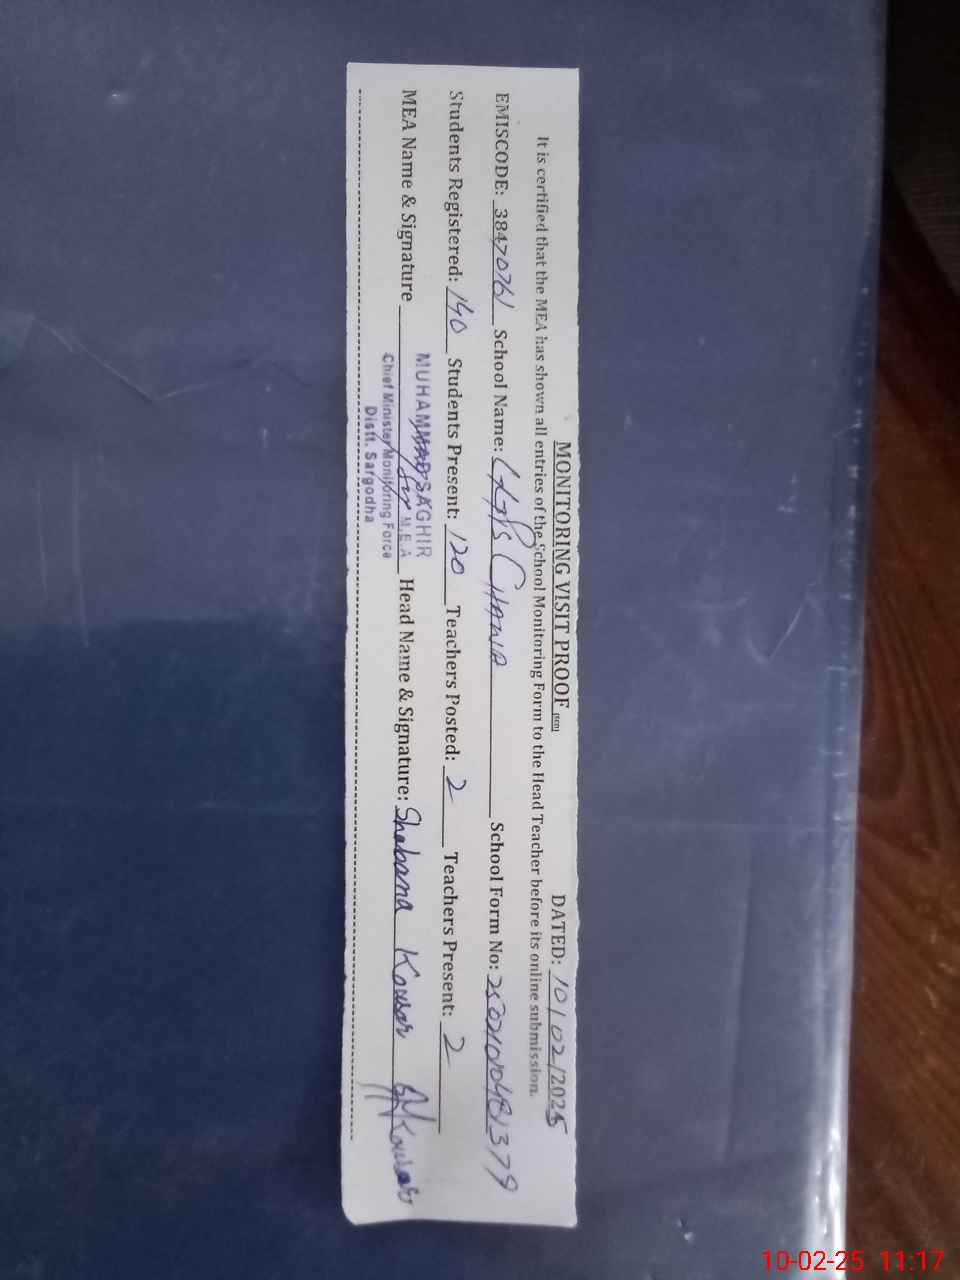 MONITORING VISIT PROOF DATED: 10/02/2025
It is certified that the MEA has shown all entries of the School Monitoring Form to the Head Teacher before its online submission.
EMISCODE: 38470761 School Name: CHAWA School Form No:
Students Registered: 140 Students Present: 120 Teachers Posted: 2 Teachers Present: 2
MEA Name & Signature Head Name & Signature: Shabana Kousar
MUHAMMAD SAGHIR
M.E.A
Chief Minister Monitoring Force
Distt. Sargodha
10-02-25 11:17